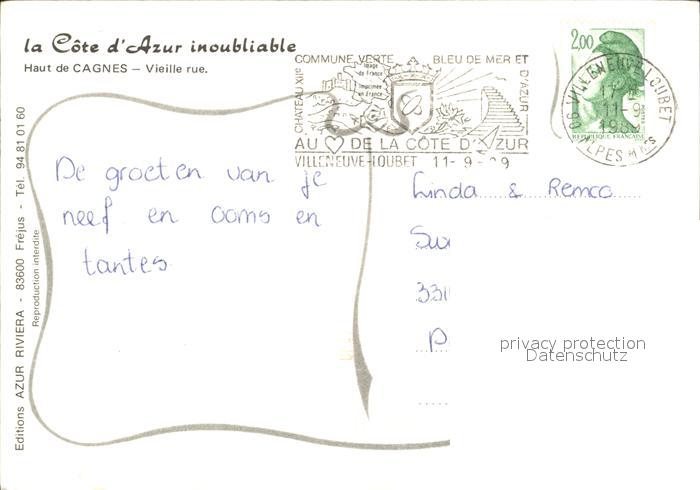 la Côte d'Azur inoubliable
Haut de CAGNES — Vieille rue.
Editions AZUR RIVIERA - 83600 Fréjus - Tél. 94 81 01 60
Reproduction interdite
COMMUNE VERTE BLEU DE MER ET D'AZUR
CHATEAU XIIe
Image de France
Imprimée en France
AU DE LA CÔTE D'AZUR
VILLENEUVE-LOUBET 11-9-
2,00
REPUBLIQUE FRANÇAISE
06 VILLENEUVE-LOUBET
11-
ALPES MMES
De groeten van je
neef en ooms en
tantes
Linda & Remco
331
privacy protection
Datenschutz